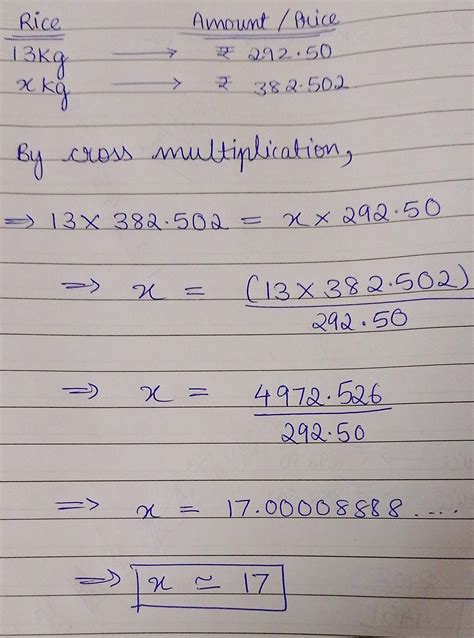 Rice Amount / Price
13kg → ₹ 292.50
x kg → ₹ 382.502
By cross multiplication,
⇒ 13 × 382.502 = x × 292.50
⇒ x = (13 × 382.502) / 292.50
⇒ x = 4972.526 / 292.50
⇒ x = 17.00008888....
⇒ x ≃ 17